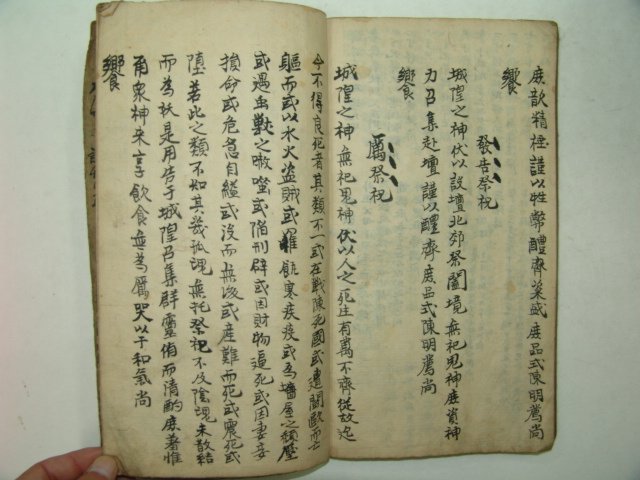 庶歆精禋謹以牲幣醴齊粢盛庶品式陳明薦尚
饗
發告祭祝
城隍之神伏以設壇北郊祭闔境無祀鬼神庶資神
力召集赴壇謹以醴齊庶品式陳明薦尚
饗
厲祭祝
城隍之神無祀鬼神伏以人之死生有萬不齊從故迄
今不得良死者其類不一或在戰陳死國或遭鬪毆而亡
軀而或以水火盜賊或罹飢寒疾疫或為墻屋之頹壓
或遇虫獸之噉螫或陷刑辟或因財物逼死或因妻妾
損命或危急自縊或沒而無後或產難而死或震死或
墮若此之類不知其幾孤魂無托祭祀不及陰魂未散結
而為妖是用告于城隍召集群靈侑而清酌庶羞惟
爾眾神來享飲食無為厲哭以干和氣尚
饗